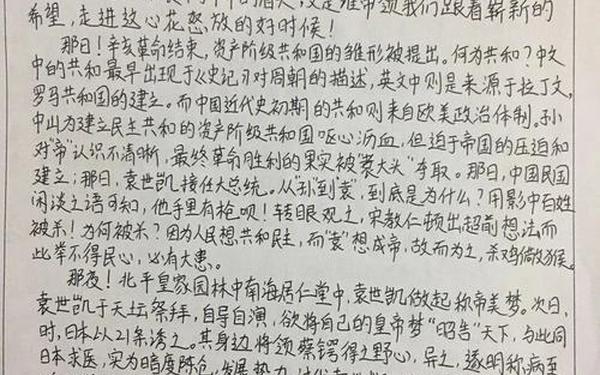 希望,走进这心花怒放的好时候!
那日!辛亥革命结束,资产阶级共和国的雏形被提出。何为共和?中文
中的共和最早出现于《史记》对周朝的描述,英文中则是来源于拉丁文,
罗马共和国的建立。而中国近代史初期的共和则来自欧美政治体制。孙
中山为建立民主共和的资产阶级共和国呕心沥血,但迫于帝国的压迫和
对"帝"认识不清晰,最终革命胜利的果实被"袁大头"夺取。那日,中国民国
建立;那日,袁世凯接任大总统。从"孙"到"袁",到底是为什么?用影中百姓
闲谈之语可知,他手里有枪呗!转眼观之,宋教仁顿出超前想法而
被杀!为何被杀?因为人民想共和民主,而"袁"想成帝,故而为之,杀鸡儆猴。
此举不得民心,必有大患。
那夜!北平皇家园林中南海居仁堂中,袁世凯做起称帝美梦。次日,
袁世凯于天坛祭拜,自导自演,欲将自己的皇帝梦"昭告"天下,与此同
时,日本以21条诱之。其身边将领蔡锷得之野心,异之,透明称病至
日本求医,实为暗度陈仓,发展势力